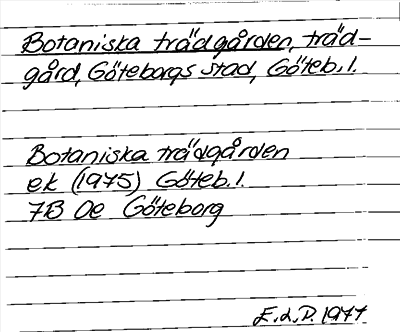 Botaniska trädgården, träd-
gård, Göteborgs stad, Göteb. l.
Botaniska trädgården
ek (1975) Göteb. l.
7B 0e Göteborg
E.d.P. 1977